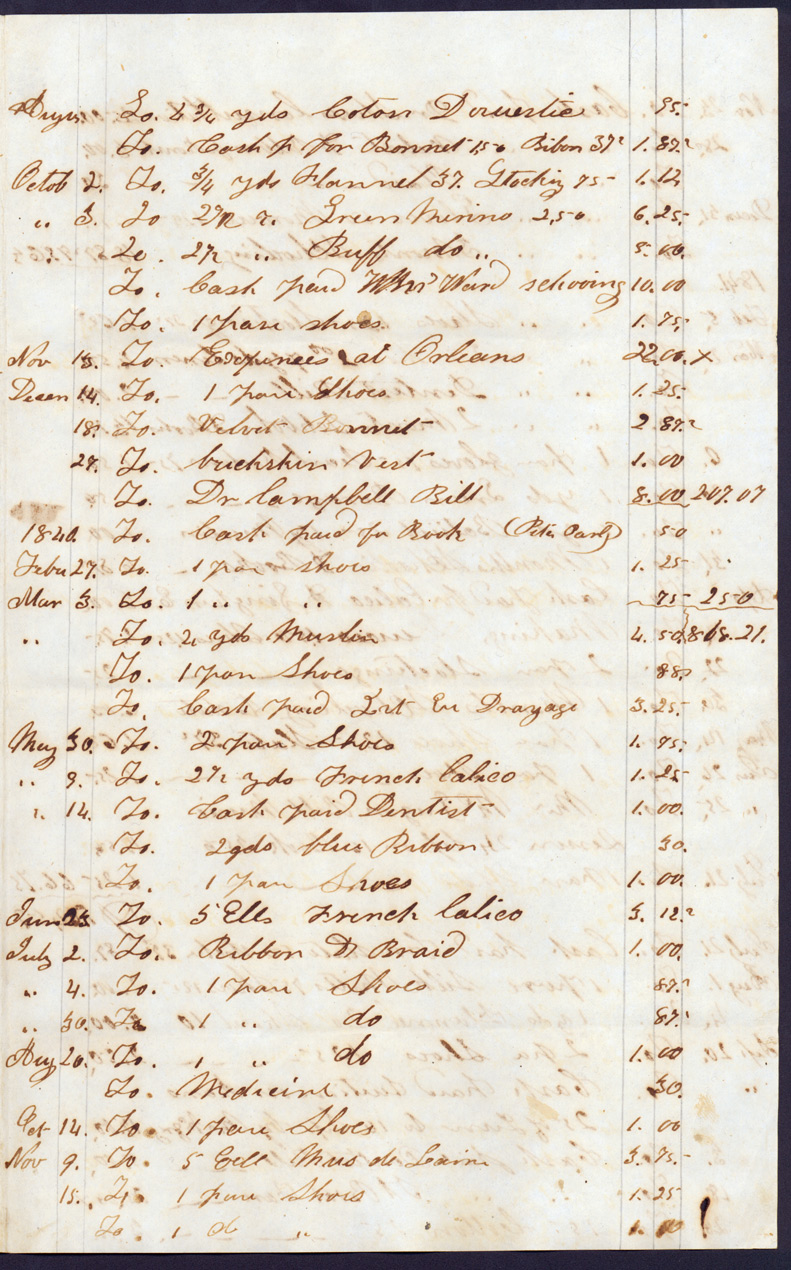 To. 4 3/4 yds Coton Domestic 95
To. Cash p for Bonnet 1,50 Ribon 37 1. 87
Octob 2. To. 3/4 yds Flannel 37. Stocking 75 1. 12
,, 3. To 2 1/2 Green Merino 2,50 6. 25
To. 2 1/2 ,, Buff do ,, 5. 00.
To. Cash paid Mrs Ward schooing 10. 00
To. 1 pare shoes 1. 75
Nov 18. To. Expences at Orleans 22.00. X
Decem 14. To. 1 pair Shoes 1. 25.
18. To. Velvet Bonnet 2 87
27. To. buckskin Vest 1. 00
To. Dr Campbell Bill 8. 00 207.07
1840. To. Cash paid for Book 50
Febu 27. To. 1 par shoes 1. 25
Mar 3. To. 1 ,, ,, 75 2 50
,, To. yds Muslin 4. 50 868.21.
To. 1 pare Shoes 88
To. Cash paid Drayage 3. 25.
May 30. To. 2 pair Shoes 1. 75
,, 9. To. 2 1/2 yds French Calico 1. 25
,, 14. To. Cash paid Dentist 1. 00.
To. 2 yds blue Ribbon 30.
To. 1 pare Shoes 1. 00.
June 23 To. 5 Ells French Calico 3. 12
July 2. To. Ribbon & Braid 1. 00.
,, 4. To. 1 pair Shoes 87
,, 30. To 1 ,, do 87
Aug 20. To. 1 ,, do 1. 00
To. Medicine 30.
Oct 14. To 1 pare Shoes 1. 00
Nov 9. To. 5 Eell Mus de Lain 3. 75.
15. To. 1 pare Shoes 1. 25
To. 1 do ,, 1. 00